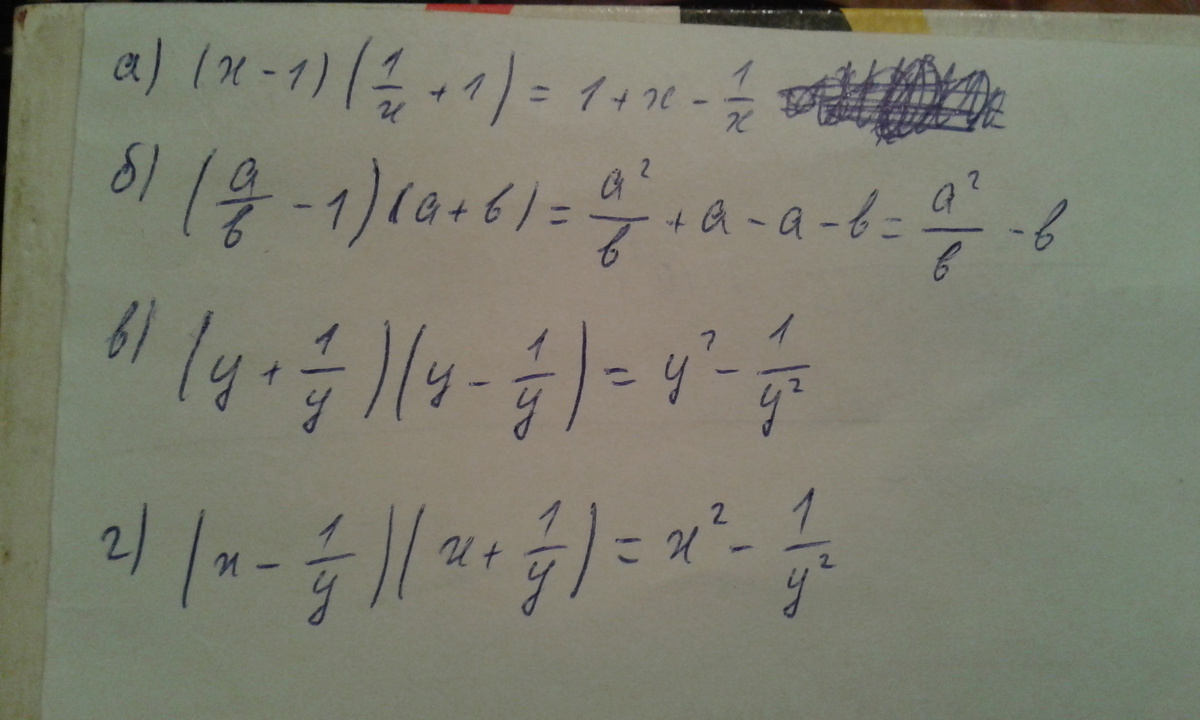 а) (x - 1) (1/x + 1) = 1 + x - 1/x
б) (a/в - 1) (a + в) = a²/в + a - a - в = a²/в - в
в) (y + 1/y) (y - 1/y) = y² - 1/y²
г) (x - 1/y) (x + 1/y) = x² - 1/y²